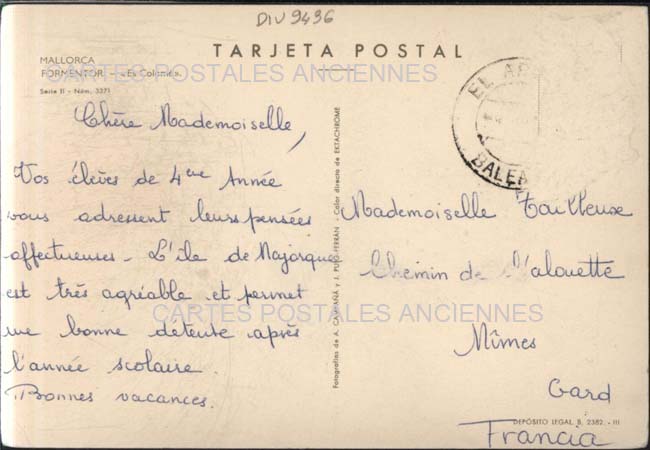 DIV 9436
MALLORCA
FORMENTOR. — «Es Colomé».
Serie II - Núm. 3371
TARJETA POSTAL
CARTES POSTALES ANCIENNES
Chère Mademoiselle,
Vos élèves de 4ème Année
vous adressent leurs pensées
affectueuses - L'île de Majorque
est très agréable et permet
une bonne détente après
l'année scolaire.
Bonnes vacances.
Fotografías de A. CAMPAÑA y J. PUIG-FERRÁN - Color directo de EKTACHROME
EL AR
BALEA
Mademoiselle
Chemin de l'alouette
CARTES POSTALES ANCIENNES
Nîmes
Gard
DEPÓSITO LEGAL B. 2382. - III
Francia